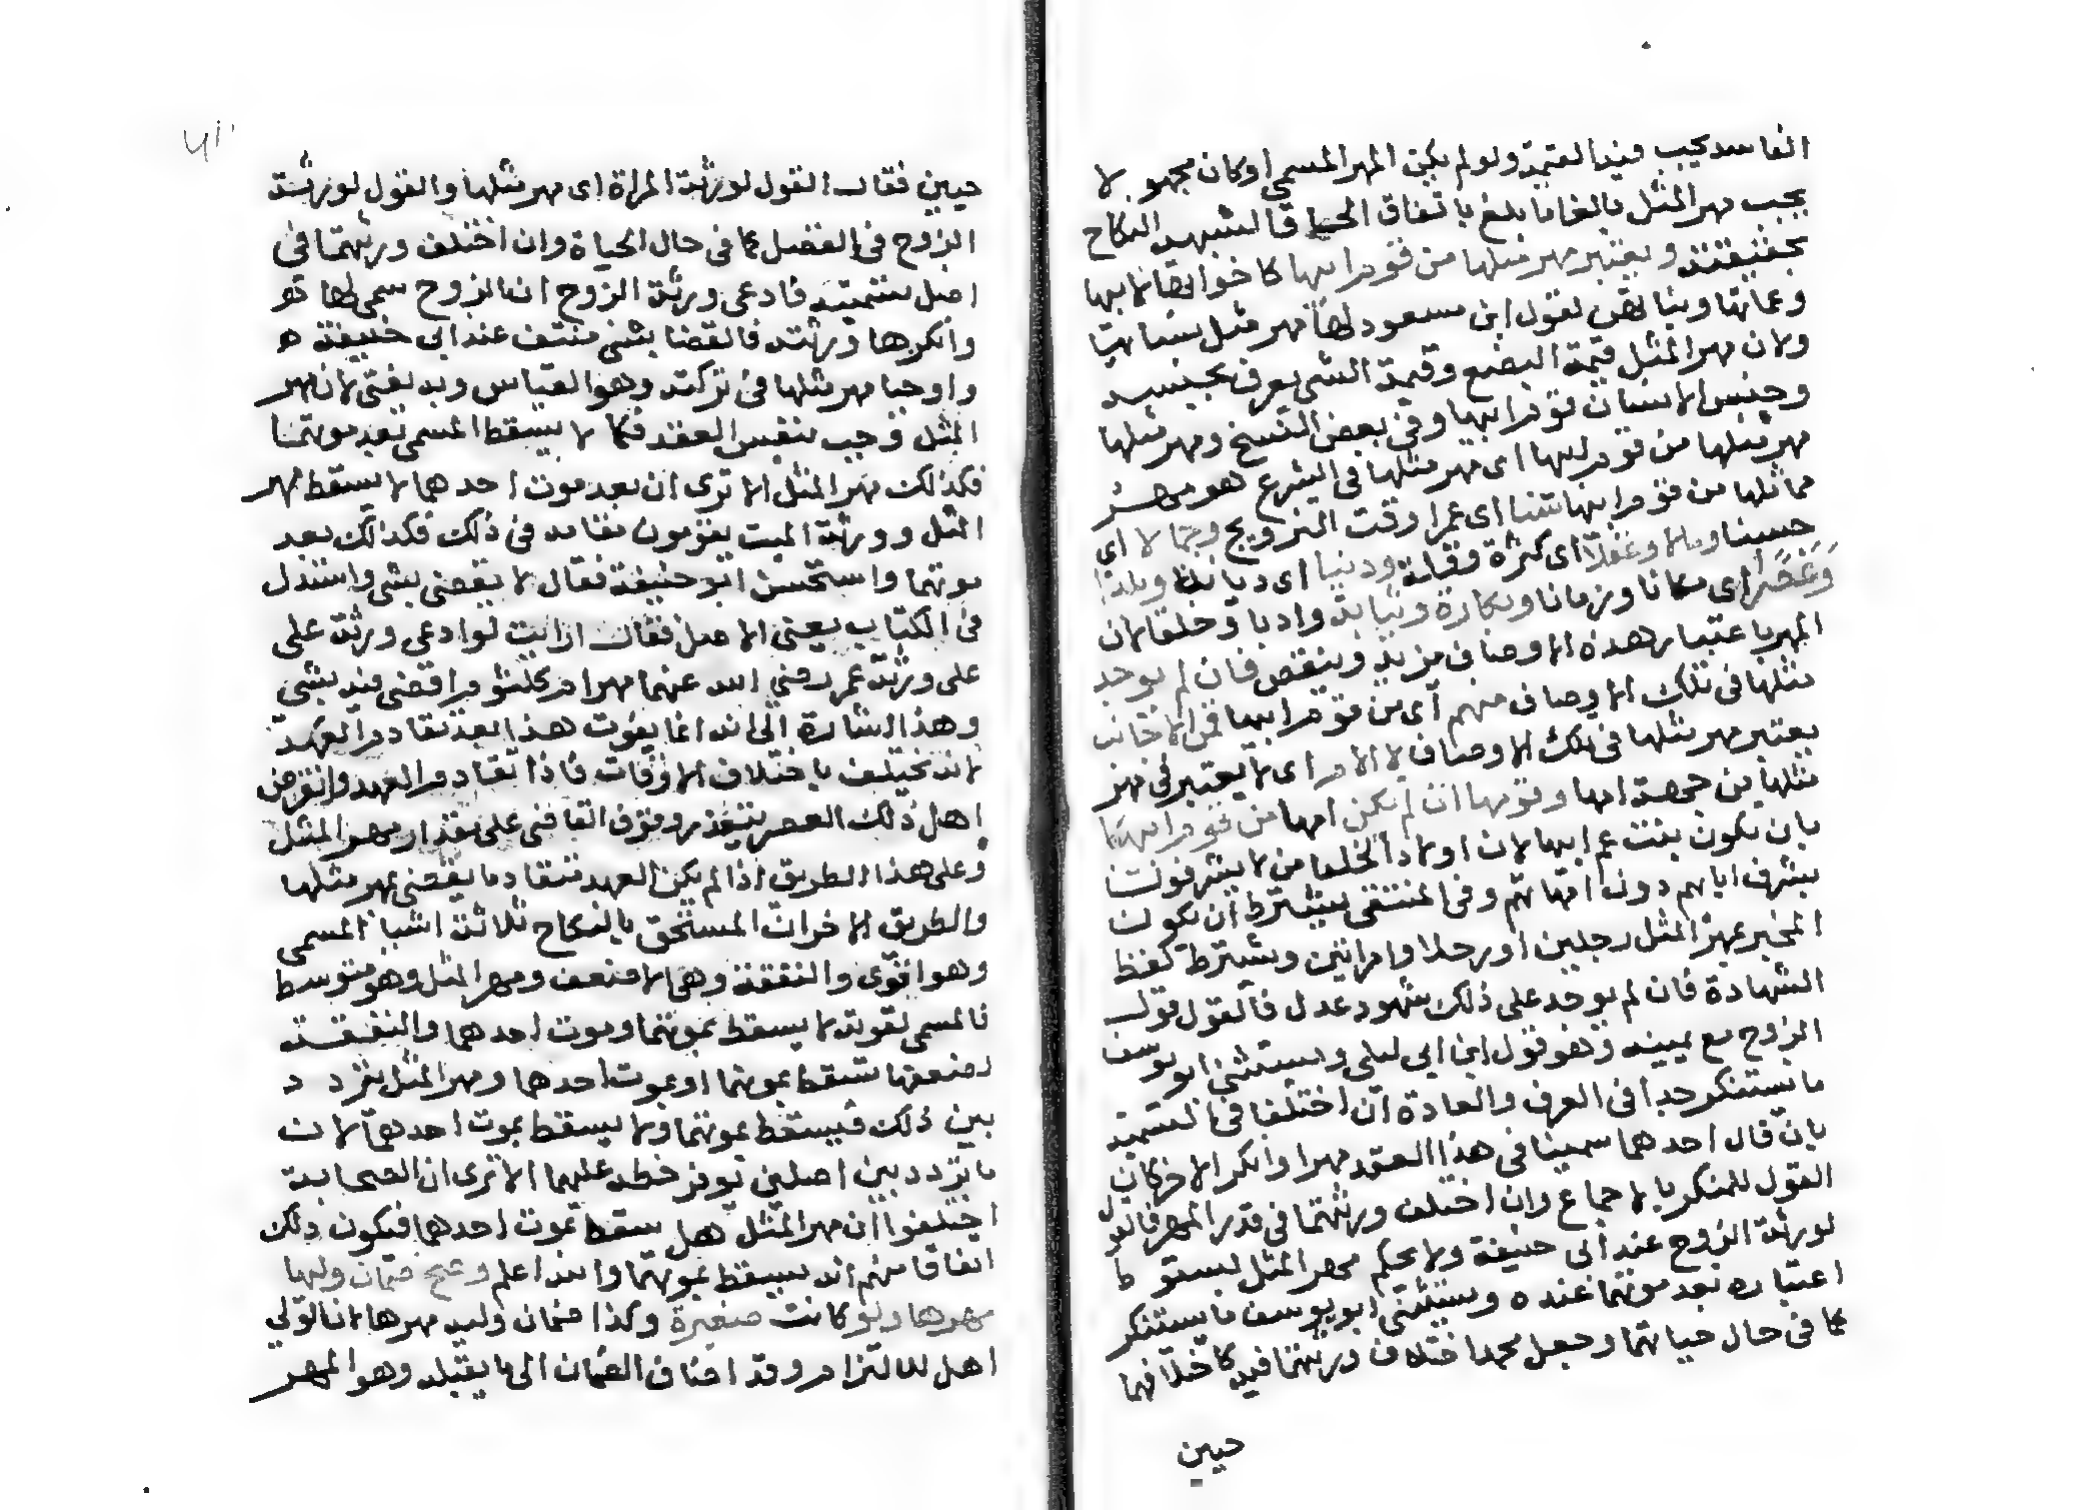 الفاسد يجب فيه العتمة ولو لم يكن المهر المسمى او كان مجهو لا
يجب مهر المثل بالغا ما بلغ باتفاق الحيا قال لشبهه النكاح
بحقيقته ويعتبر مهر مثلها من قوم ابيها كاخواتها لابيها
وعماتها وبنا تهن لقول ابن مسعود لها مهر مثل نسائها
ولان مهر المثل قيمة البضع وقيمة الشي يعرف بجنسه
وجنس الانسان قوم ابيها وفي بعض النسخ ومهر مثلها
مهر مثلها من قوم ابيها اى مهر مثلها فى الشرع هو مهر
مماثلها من قوم ابيها سنا اى عمرا وقت التزويج وجمالا اى
حسنا ومالا وعقلا اى كثرة وقلة ودينا اى ديانة وبلدا
وعصرا اى مكانا وزمانا وبكارة وثيابة وادبا وخلقا لان
المهر باعتبار هذه الاوصاف يزيد وينقص فان لم يوجد
مثلها فى تلك الاوصاف منهم اى من قوم ابيها فمن الاجانب
يعتبر مهر مثلها فى تلك الاوصاف لا الام اى لا يعتبر فى مهر
مثلها من جهة امها وقومها ان لم تكن امها من قوم ابيها
بان تكون بنت عم ابيها لان اولاد الخلفا من لا يشرفون
بشرف ابايهم دون امهاتهم وفى المنتقى يشترط ان يكون
المخبر بمهر المثل رجلين او رجلا وامراتين ويشترط لفظ
الشهادة فان لم يوجد على ذلك شهود عدل فالقول قول
الزوج مع يمينه وهو قول ابن ابى ليلى ويستثنى ابو يوسف
ما يستنكر جدا فى العرف والعادة ان اختلفا فى التسمية
بان قال احدهما سمينا فى هذا العقد مهرا وانكر الاخر كان
القول للمنكر بالاجماع وان اختلف ورثتهما فى قدر المهر فالقول
لورثة الزوج عند ابى حنيفة ولا يحكم مهر المثل لسقو ط
اعتباره بعد موتهما عنده ويستثنى ابو يوسف ما يستنكر
كما فى حال حياتهما وجعل محمد اختلاف ورثتهما فيه كاختلافهما
حيين
حيين فقال القول لورثة المراة اى مهر مثلها والقول لورثة
الزوج فى الفضل كما فى حال الحياة وان اختلف ورثتهما فى
اصل التسمية فادعى ورثة الزوج ان الزوج سمى لها
وانكرها ورثته فالقضا بشى منتف عند ابى حنيفة
واوجبا مهر مثلها فى تركته وهو القياس وبه يفتى لان مهر
المثل وجب بنفس العقد فكما لا يسقط المسمى بعد موتهما
فكذلك مهر المثل الا ترى ان بعد موت احدهما لا يسقط مهر
المثل وورثة الميت يقومون مقامه فى ذلك فكذلك بعد
موتهما واستحسن ابو حنيفة فقال لا يقضى بشى واستدل
فى الكتاب يعنى الاصل فقال ارايت لو ادعى ورثة على
على ورثة عمر رضي الله عنهما مهر ام كلثوم اقضى فيه بشى
وهذا اشارة الى انه انما يفوت هذا بعد تقادم العهد
لانه يختلف باختلاف الاوقات فاذا تقادم العهد وانقرض
اهل ذلك العصر يتعذر وقوف القاضى على مقدار مهر المثل
وعلى هذا الطريق اذا لم يكن العهد متقادما يقضى بمهر مثلها
والطريق الاخر ان المستحق بالنكاح ثلاثة اشيا المسمى
وهو اقوى والنفقة وهى الاضعف ومهر المثل وهو متوسط
فالمسمى لقوته لا يسقط بموتهما وموت احدهما والنفقة
لضعفها تسقط بموتهما او بموت احدها ومهر المثل يترد د
بين ذلك فيسقط بموتهما ولا يسقط بموت احدهما لان
ما تردد بين اصلين توفر حظه عليهما الا ترى ان الصحابة
اختلفوا ان مهر المثل هل يسقط بموت احدهما فيكون ذلك
اتفاقا منهم انه يسقط بموتهما والله اعلم وصح ضمان وليها
مهرها ولو كانت صغيرة وكذا ضمان وليه مهرها لان الولي
اهل للالتزام وقد اضاف الضمان الى ما يقبله وهو المهر